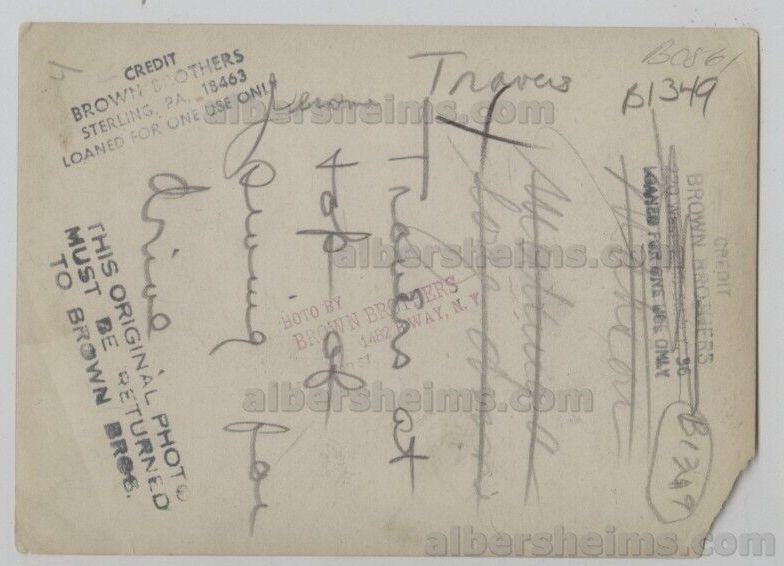 CREDIT
BROWN BROTHERS
STERLING, PA. 18463
LOANED FOR ONE USE ONLY
Jerome Travers
B0861
B1349
Travers at
top of
swing for
drive
THIS ORIGINAL PHOTO
MUST BE RETURNED
TO BROWN BROS.
HOTO BY
BROWN BROTHERS
1482 WAY, N.Y.
CREDIT
BROWN BROTHERS
LOANED FOR ONE USE ONLY
B1349
albersheims.com
albersheims.com
albersheims.com
albersheims.com